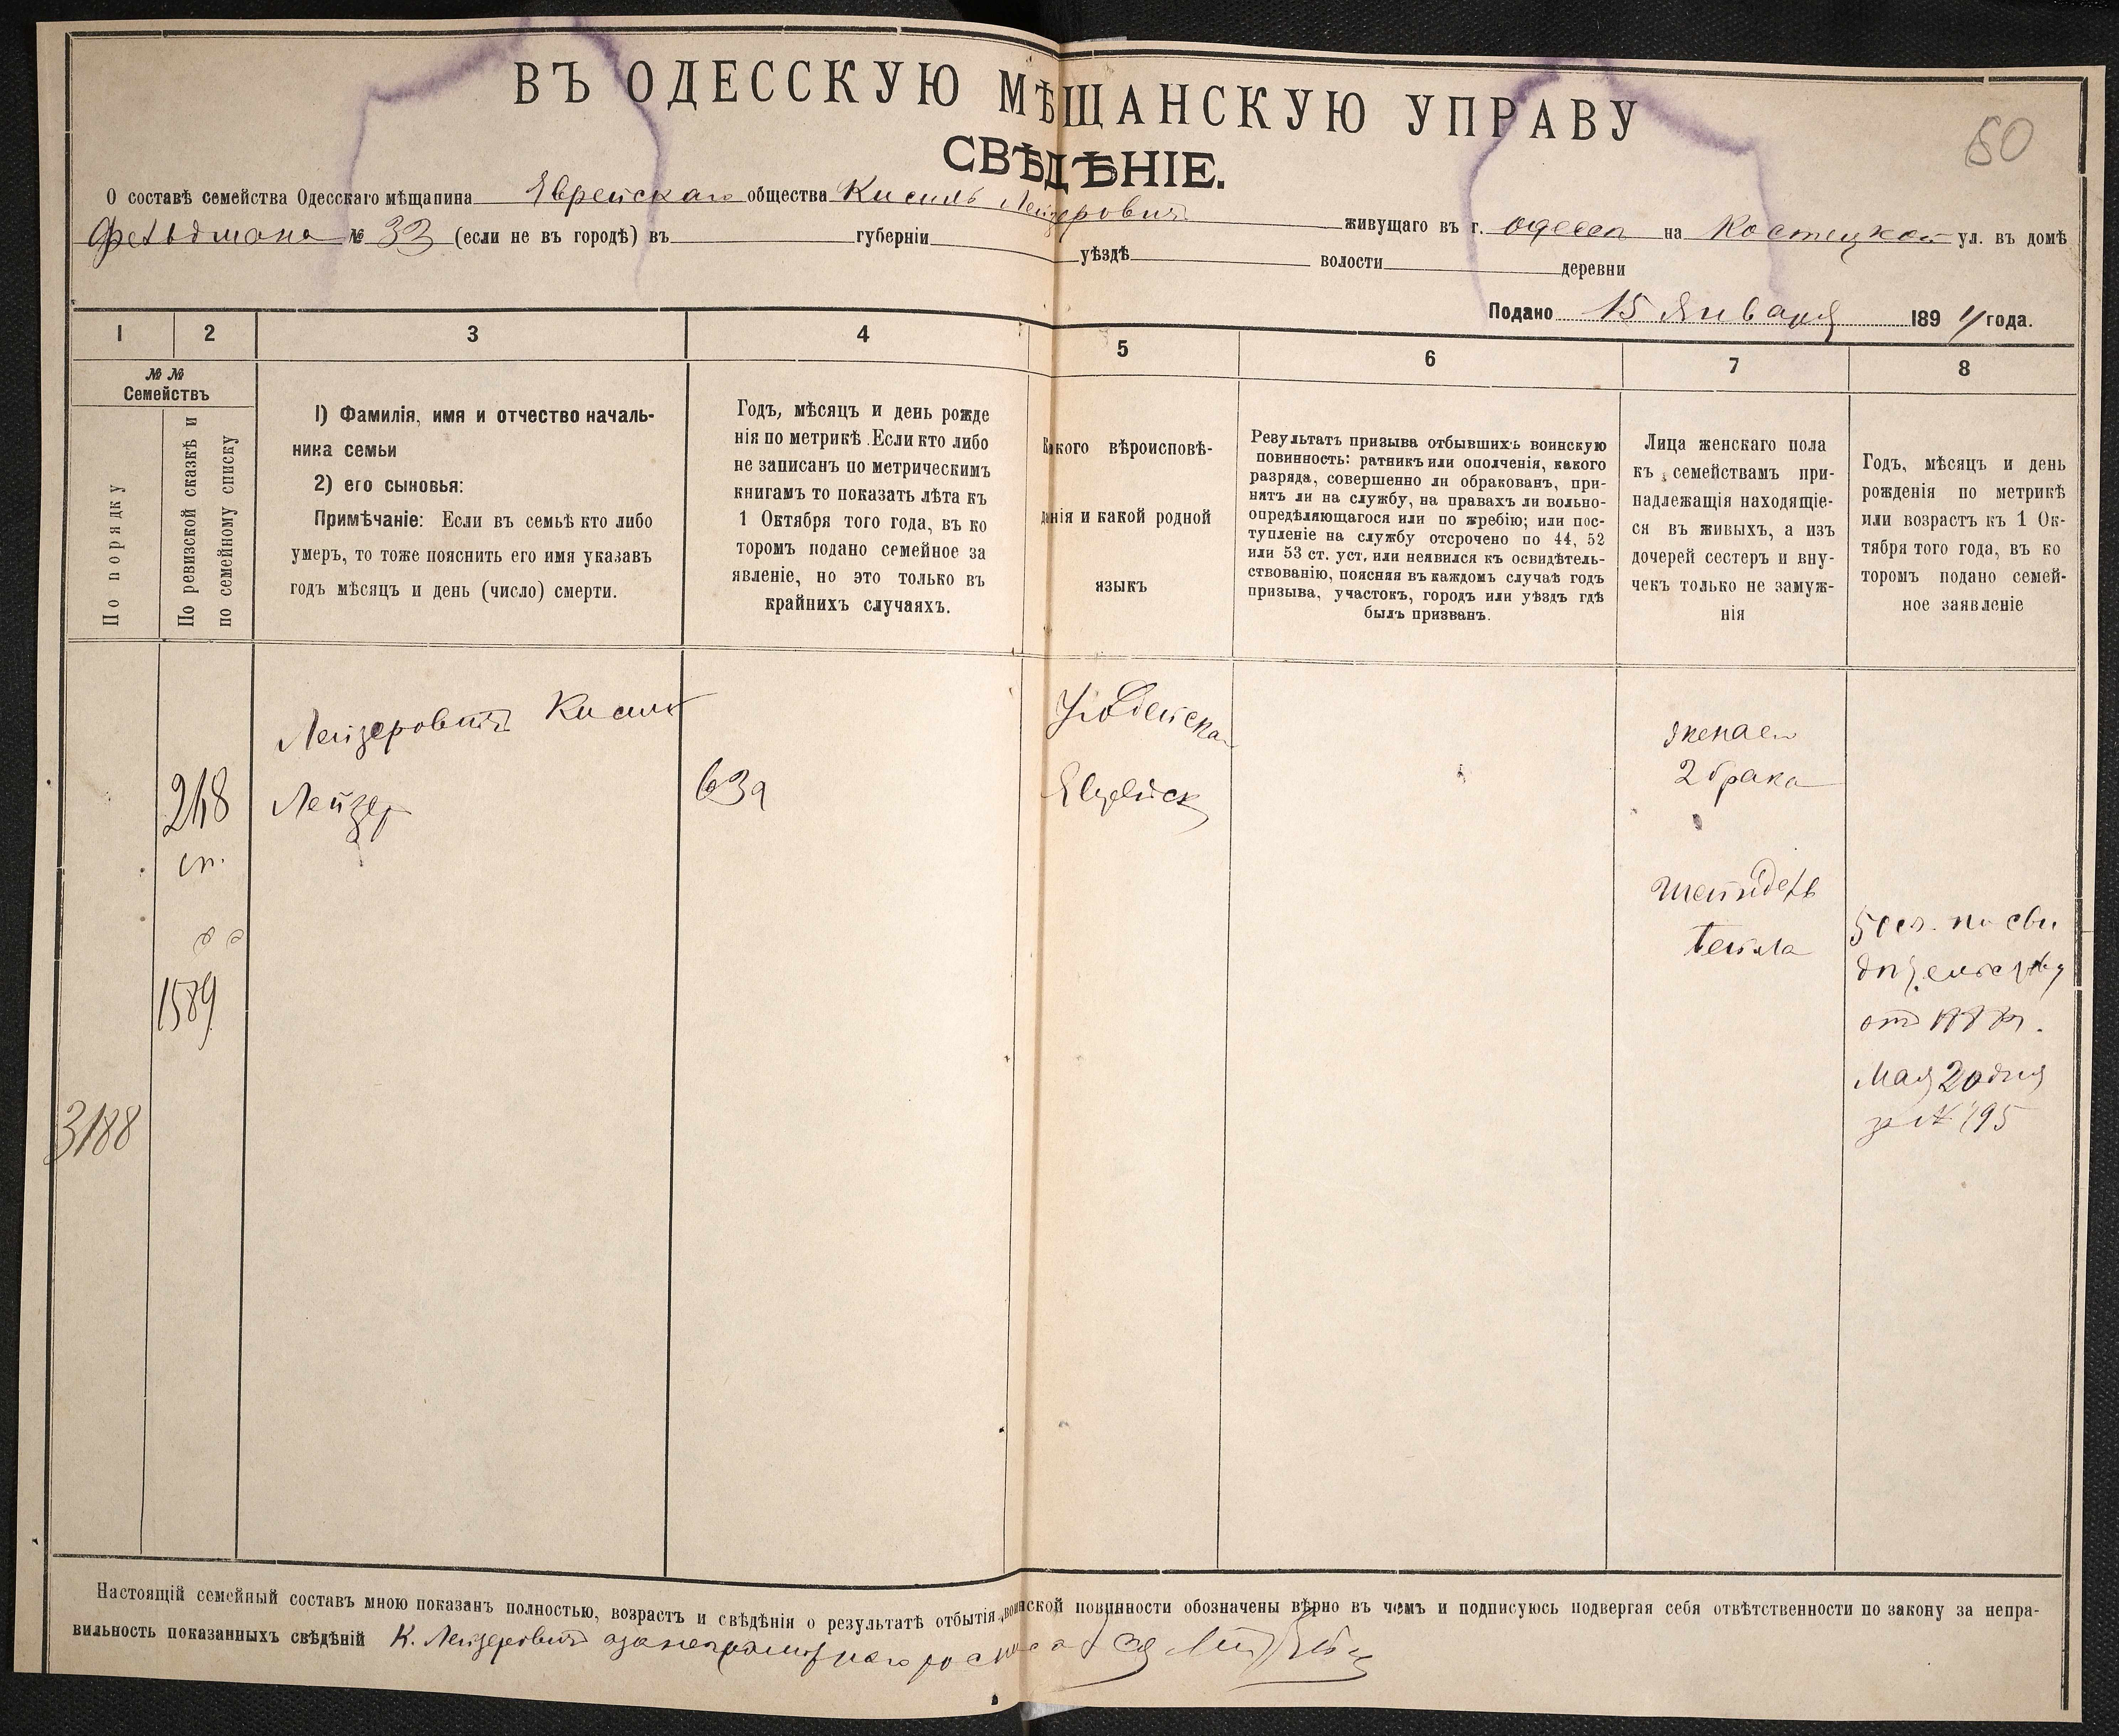 ВЪ ОДЕССКУЮ МѢЩАНСКУЮ УПРАВУ
СВѢДѢНІЕ.
50
О составѣ семейства Одесскаго мѣщанина Еврейскаго общества Кисиль Лейзеровичъ живущаго въ г. Одессѣ на Костецкой ул. въ домѣ
Фельдмана № 33 (если не въ городѣ) въ губерніи уѣздѣ волости деревни
Подано 15 Января 1894 года.
1 2 3 4 5 6 7 8
№ №
Семействъ
По порядку
По ревизской сказкѣ и
по семейному списку
1) Фамилія, имя и отчество началь-
ника семьи
2) его сыновья:
Примѣчаніе: Если въ семьѣ кто либо
умеръ, то тоже пояснить его имя указавъ
годъ мѣсяцъ и день (число) смерти.
Годъ, мѣсяцъ и день рожде
нія по метрикѣ. Если кто либо
не записанъ по метрическимъ
книгамъ то показать лѣта къ
1 Октября того года, въ ко
торомъ подано семейное за
явленіе, но это только въ
крайнихъ случаяхъ.
Какого вѣроисповѣ-
данія и какой родной
языкъ
Результатъ призыва отбывшихъ воинскую
повинность: ратникъ или ополченія, какого
разряда, совершенно ли обракованъ, при-
нятъ ли на службу, на правахъ ли вольно-
опредѣляющагося или по жребію; или пос-
тупленіе на службу отсрочено по 44, 52
или 53 ст. уст. или неявился къ освидѣтель-
ствованію, поясняя въ каждомъ случаѣ годъ
призыва, участокъ, городъ или уѣздъ гдѣ
былъ призванъ.
Лица женскаго пола
къ семействамъ при-
надлежащія находящіе-
ся въ живыхъ, а изъ
дочерей сестеръ и вну-
чекъ только не замуж-
нія
Годъ, мѣсяцъ и день
рожденія по метрикѣ
или возрастъ къ 1 Ок-
тября того года, въ ко
торомъ подано семей-
ное заявленіе
Лейзеровичъ Кисиль
Лейзер
248
сп.
1589
3188
63
Еврейск
жена ею
2 брака
Шейндель
Бейла
50 л. по сви
дѣтельству
отъ
Мая 20 дня
за № 195
Настоящій семейный составъ мною показанъ полностью, возрастъ и свѣдѣнія о результатѣ отбытія воинской повинности обозначены вѣрно въ чемъ и подписуюсь подвергая себя отвѣтственности по закону за непра-
вильность показанныхъ свѣдѣній К. Лейзеровичъ